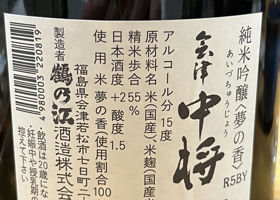 純米吟醸〈夢の香〉
あいづちゅうじょう
会津中将
R5BY
アルコール分 15度
原材料名 米(国産)・米麹(国産
精米歩合55%
日本酒度+2 酸度1.5
使用米 夢の香使用割合100
福島県会津若松市七日町二
製造者 鶴乃江酒造株式会
4980003220819
・飲酒は20歳にな
妊娠中や授乳期の
控えて下さい